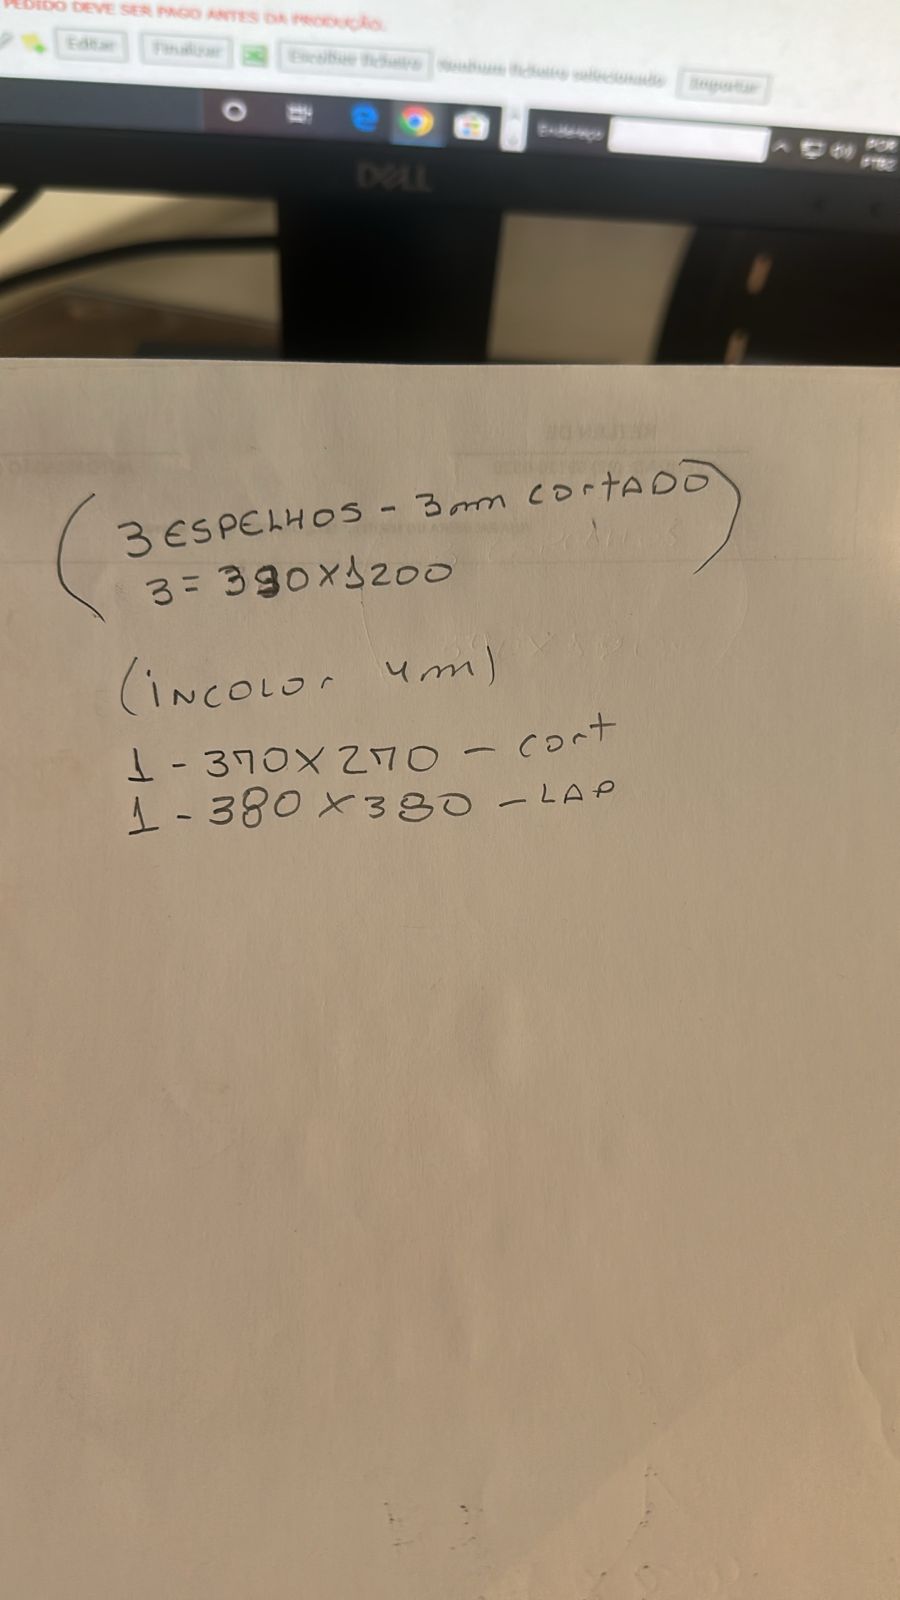 PEDIDO DEVE SER PAGO ANTES DA PRODUÇÃO.
Editar Finalizar Escolher ficheiro Nenhum ficheiro selecionado Importar
Endereço POR
PTB2
DELL
3 ESPELHOS - 3mm cortADO
3 = 390X1200
(iNCOLOr 4mm)
1 - 370X270 - cort
1 - 380X380 - LAP